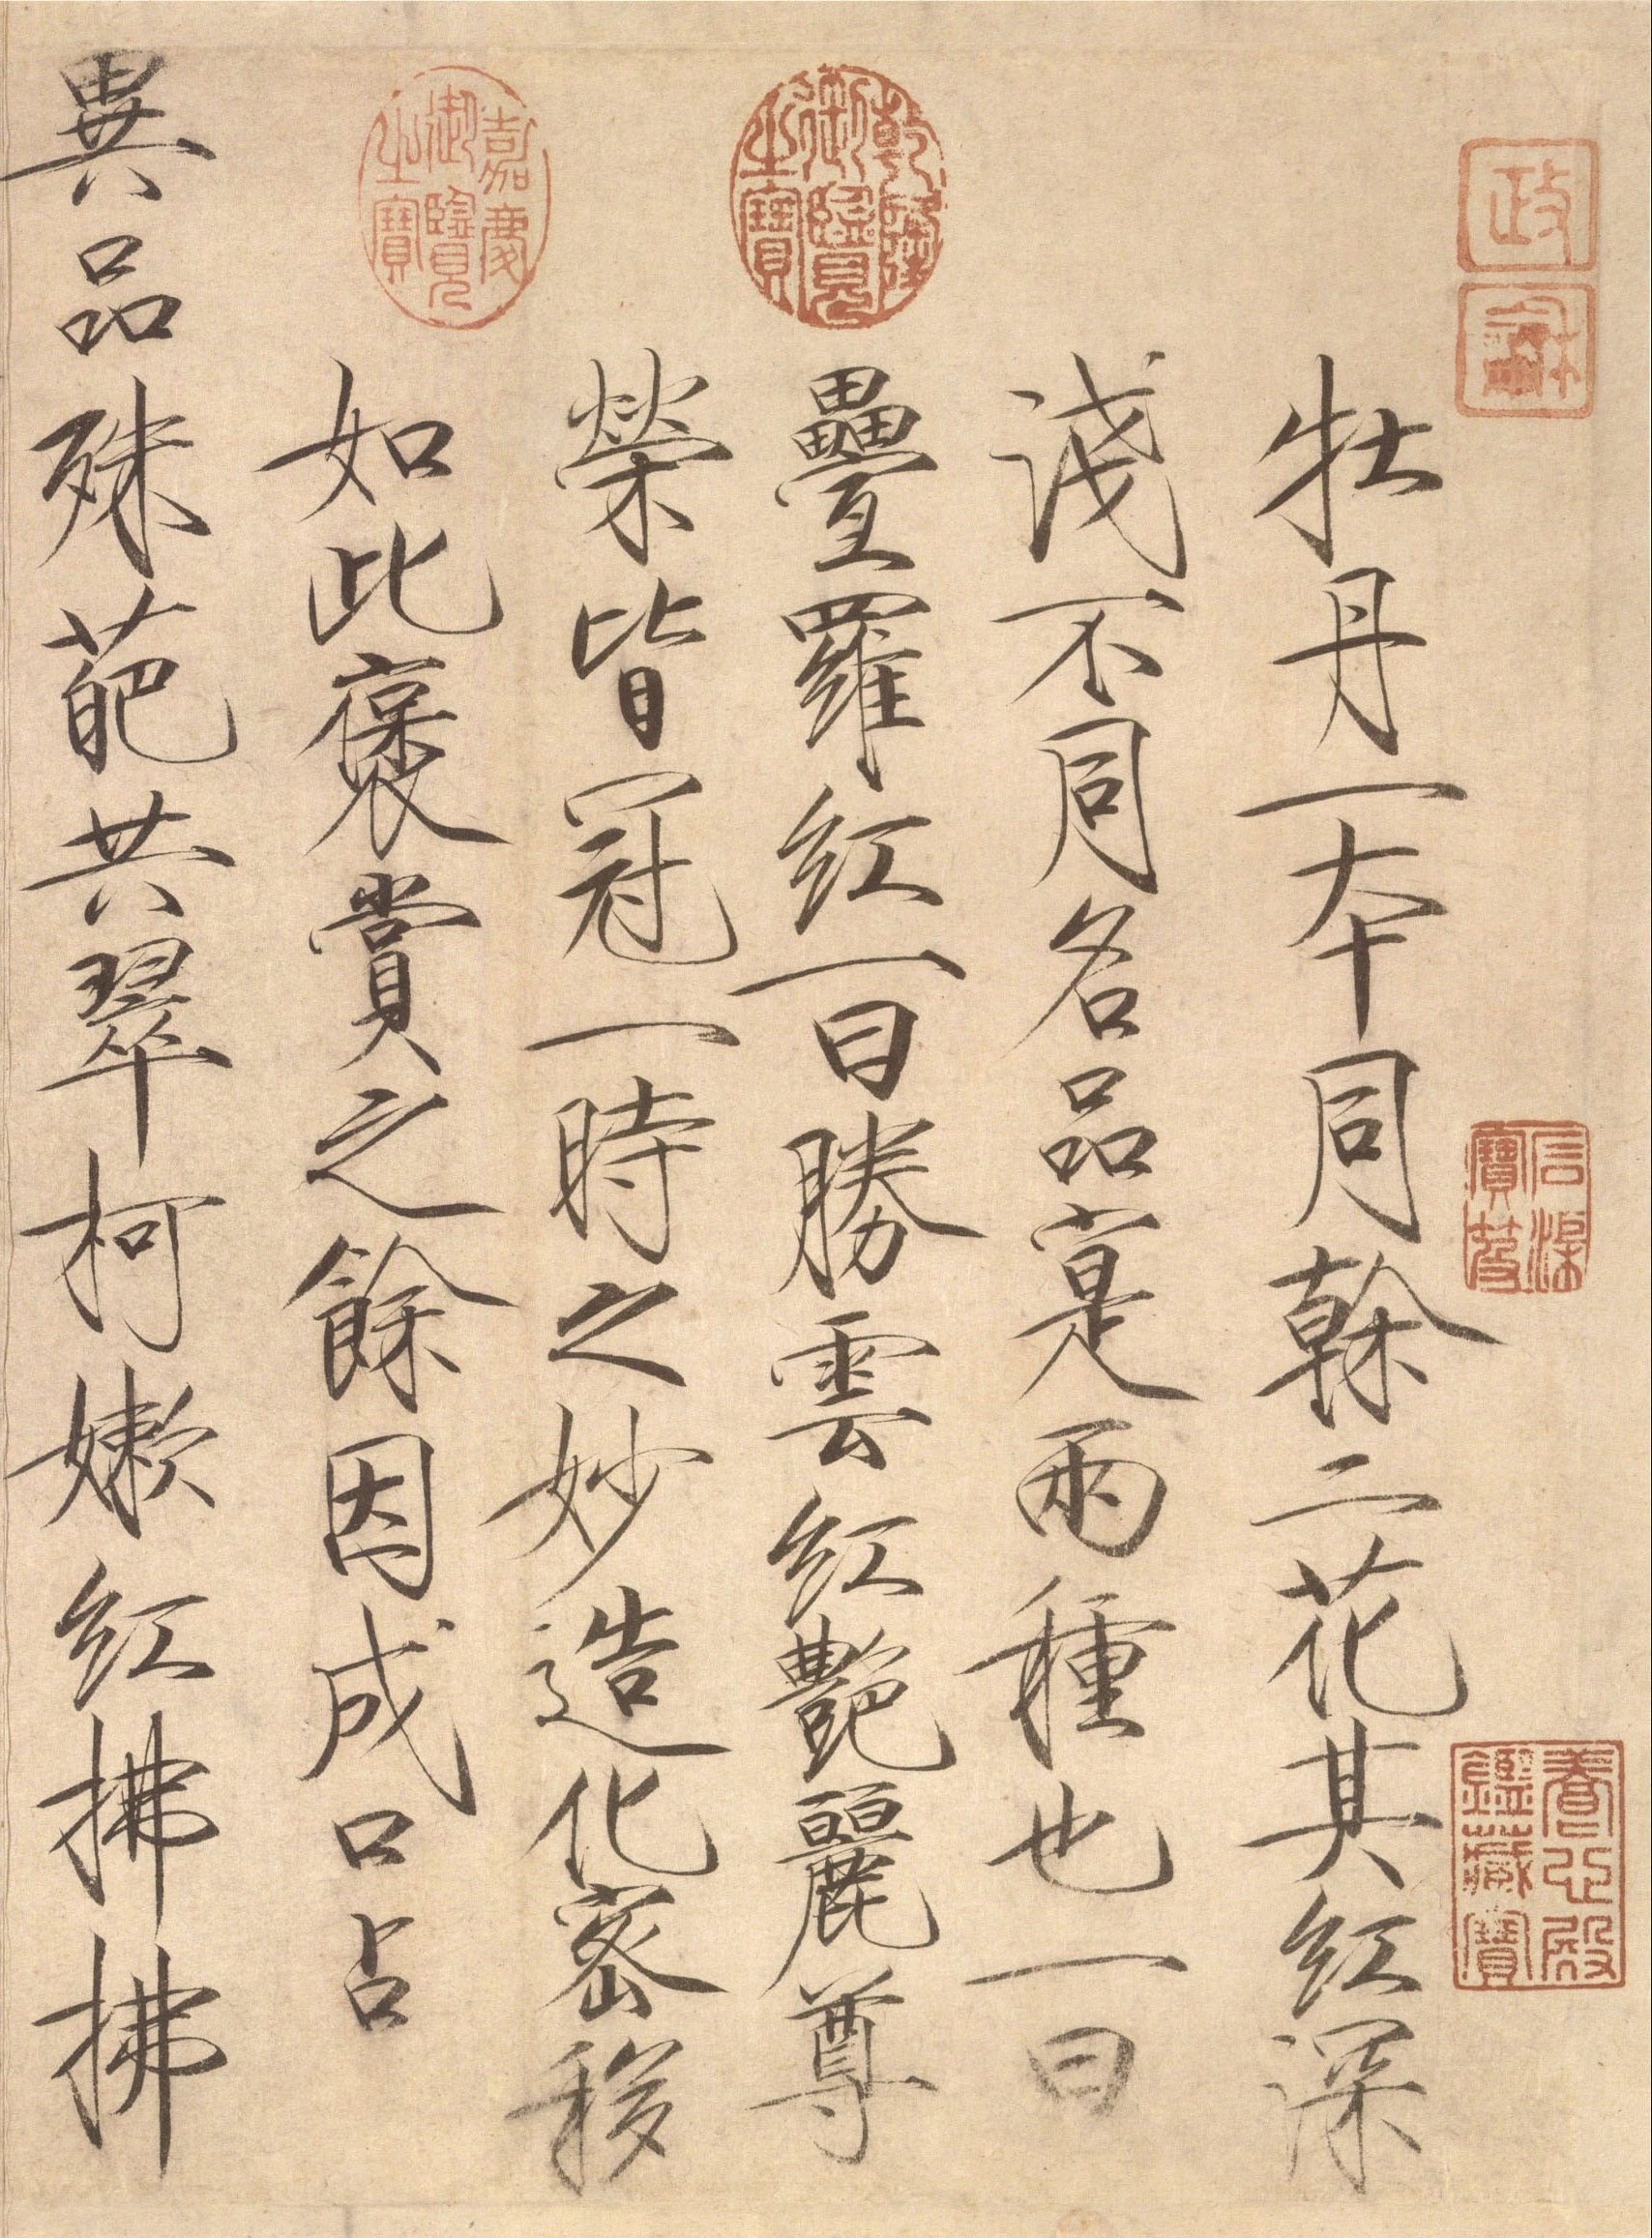 政龢
石渠寶笈
養心殿鑑藏寶
牡丹一本同榦二花其紅深
淺不同名品寔兩種也一曰
疊羅紅一曰勝雲紅艷麗尊
榮皆冠一時之妙造化密移
如此褒賞之餘因成口占
異品殊葩共翠柯嫩紅拂拂
乾隆御覽之寶
嘉慶御覽之寶